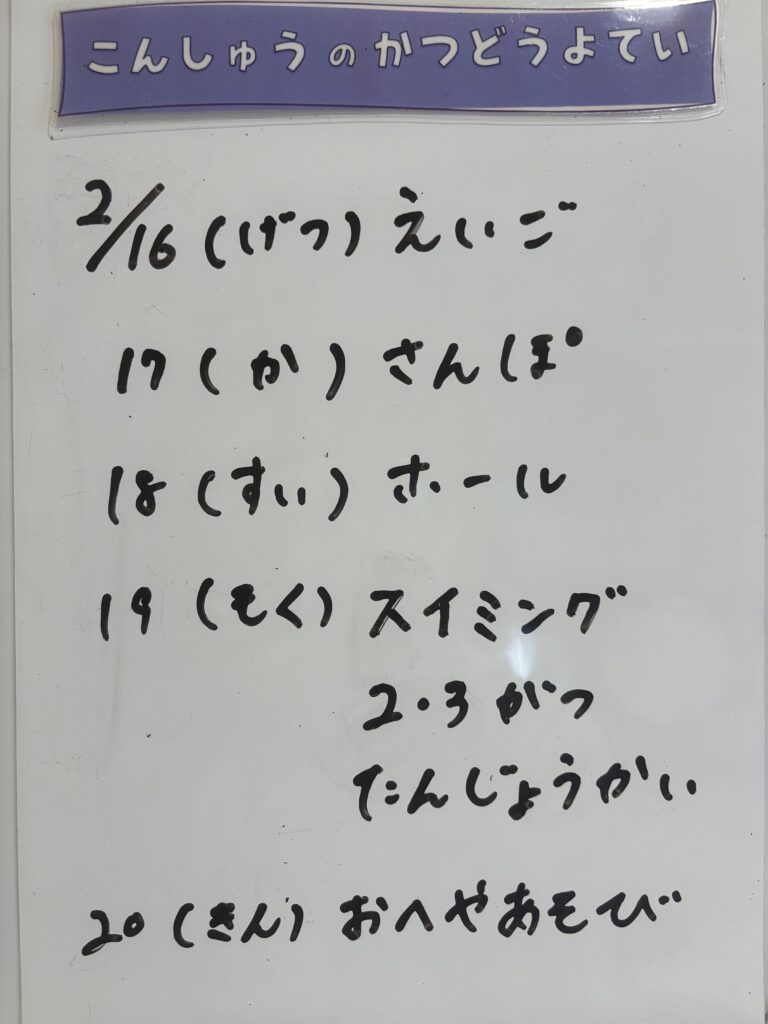 こんしゅうのかつどうよてい
2/16(げつ)えいご
17(か)さんぽ
18(すい)ホール
19(もく)スイミング
2・3がつ
たんじょうかい
20(きん)おへやあそび